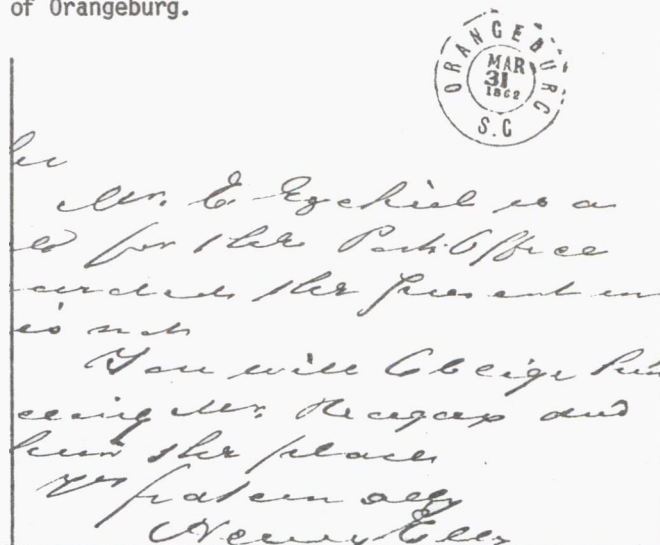 of Orangeburg.
ORANGEBURG
MAR
31
1862
S.C
Mr. E Ezekiel is a
for the Post Office
the present
is not
You will Oblige
Mr. Reagan and
him the place
Yrs fraternally
Henry